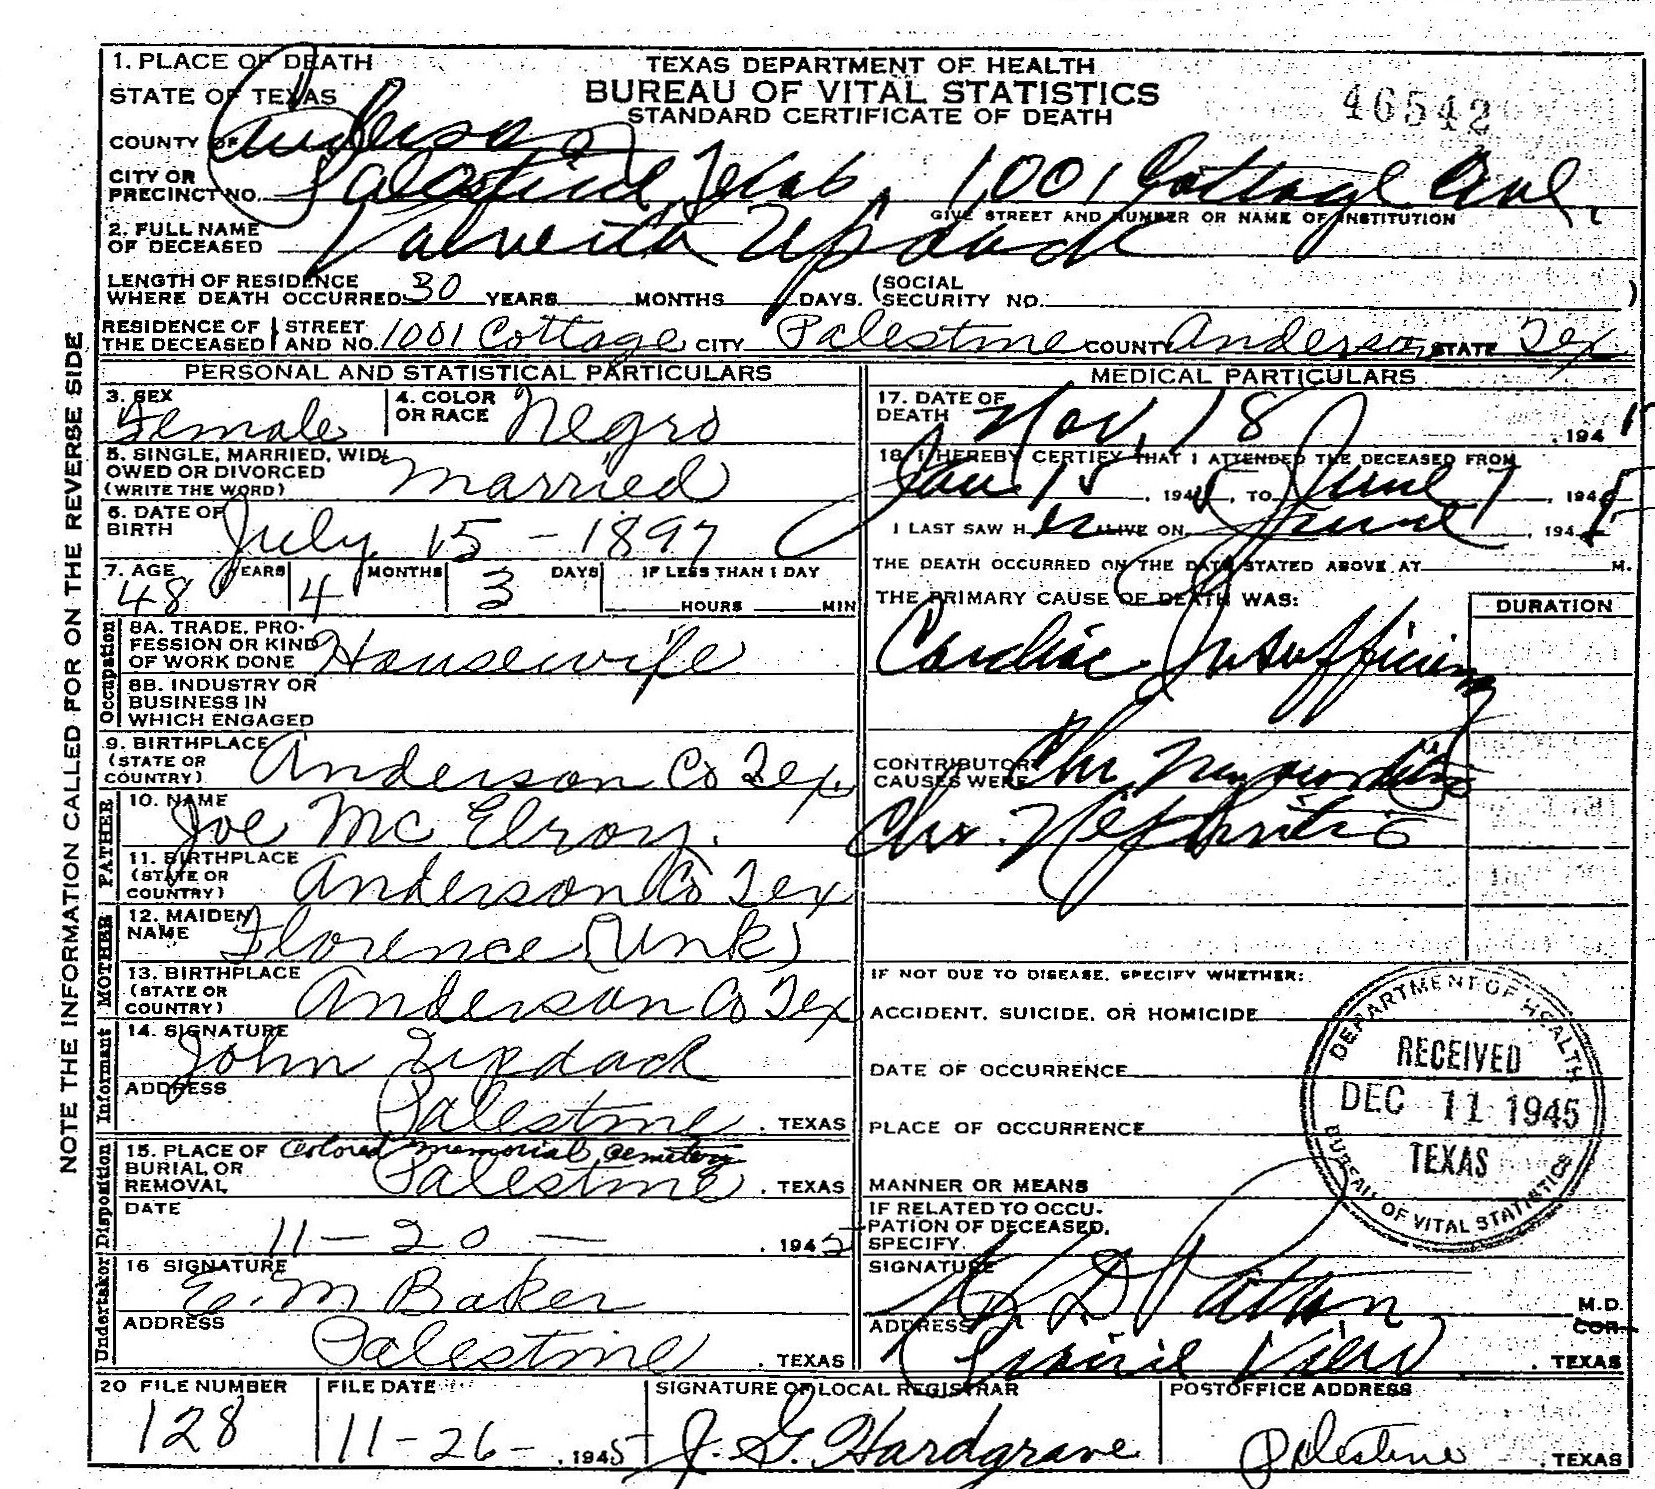 1. PLACE OF DEATH
STATE OF TEXAS
TEXAS DEPARTMENT OF HEALTH
BUREAU OF VITAL STATISTICS
STANDARD CERTIFICATE OF DEATH
46542
COUNTY OF Anderson
CITY OR PRECINCT NO. Palestine Texas, 1001 Cottage Ave,
GIVE STREET AND NUMBER OR NAME OF INSTITUTION
2. FULL NAME OF DECEASED Updack
LENGTH OF RESIDENCE WHERE DEATH OCCURRED 30 YEARS MONTHS DAYS. (SOCIAL SECURITY NO. )
RESIDENCE OF THE DECEASED STREET AND NO. 1001 Cottage CITY Palestine COUNTY Anderson STATE Tex
NOTE THE INFORMATION CALLED FOR ON THE REVERSE SIDE
PERSONAL AND STATISTICAL PARTICULARS
3. SEX Female
4. COLOR OR RACE Negro
5. SINGLE, MARRIED, WIDOWED OR DIVORCED (WRITE THE WORD) Married
6. DATE OF BIRTH July 15 - 1897
7. AGE 48 YEARS 4 MONTHS 3 DAYS IF LESS THAN 1 DAY
HOURS MIN
Occupation
8A. TRADE, PROFESSION OR KIND OF WORK DONE Housewife
8B. INDUSTRY OR BUSINESS IN WHICH ENGAGED
9. BIRTHPLACE (STATE OR COUNTRY) Anderson Co Tex.
FATHER
10. NAME Joe McElroy.
11. BIRTHPLACE (STATE OR COUNTRY) Anderson Co Tex
MOTHER
12. MAIDEN NAME Florence (Unk)
13. BIRTHPLACE (STATE OR COUNTRY) Anderson Co Tex
Informant
14. SIGNATURE John Updack
ADDRESS Palestine, TEXAS
Disposition
15. PLACE OF BURIAL OR REMOVAL Colored Memorial Cemetery
Palestine, TEXAS
DATE 11-20-, 1945
Undertaker
16 SIGNATURE E. M Baker
ADDRESS Palestine, TEXAS
MEDICAL PARTICULARS
17. DATE OF DEATH Nov, 18, 194
18. I HEREBY CERTIFY THAT I ATTENDED THE DECEASED FROM
Jan 15, 1945, TO June 7, 1945
I LAST SAW H er ALIVE ON June, 1945
THE DEATH OCCURRED ON THE DATE STATED ABOVE AT M.
THE PRIMARY CAUSE OF DEATH WAS:
DURATION
Cardiac Insufficiency
CONTRIBUTORY CAUSES WERE Chr Myocarditis
Chr. Nephritis
IF NOT DUE TO DISEASE, SPECIFY WHETHER:
ACCIDENT, SUICIDE, OR HOMICIDE
DATE OF OCCURRENCE
PLACE OF OCCURRENCE
MANNER OR MEANS
IF RELATED TO OCCUPATION OF DECEASED, SPECIFY.
DEPARTMENT OF HEALTH
RECEIVED
DEC 11 1945
TEXAS
BUREAU OF VITAL STATISTICS
SIGNATURE Patton M.D.
COR
ADDRESS Prairie View, TEXAS
20 FILE NUMBER 128
FILE DATE 11-26-, 1945
SIGNATURE OF LOCAL REGISTRAR J. G. Hardgrave
POSTOFFICE ADDRESS Palestine, TEXAS